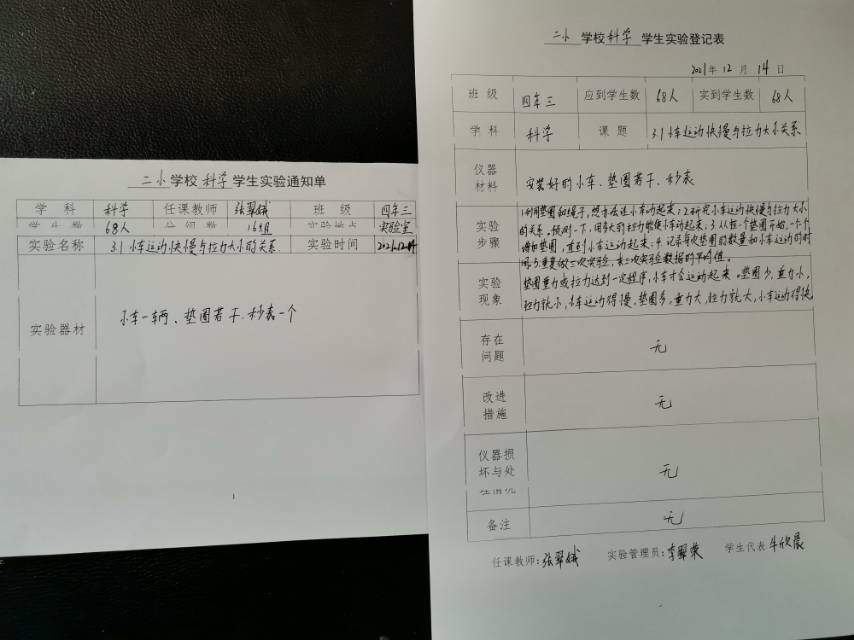 二小 学校 科学 学生实验通知单
学科 科学 任课教师 张翠娥 班级 四年三
学生数 68人 分组数 16组 实验地点 实验室
实验名称 3.1 小车运动快慢与拉力大小的关系 实验时间 2021.12.14
实验器材 小车一辆、垫圈若干、秒表一个
1
二小 学校 科学 学生实验登记表
2021年 12月 14日
班级 四年三 应到学生数 68人 实到学生数 68人
学科 科学 课题 3.1 小车运动快慢与拉力大小关系
仪器
材料
安装好的小车、垫圈若干、秒表
实验
步骤
1.利用垫圈和绳子,想办法让小车动起来;2.研究小车运动快慢与拉力大小
的关系。预测一下,用多大的拉力能使小车动起来;3.从挂一个垫圈开始,一个个
增加垫圈,直到小车运动起来;4.记录每次垫圈的数量和小车运动的时
间;5.重复做三次实验,求三次实验数据的平均值。
实验
现象
垫圈重力或拉力达到一定程序,小车才会运动起来。垫圈少,重力小,
拉力就小,小车运动得慢,垫圈多,重力大,拉力就大,小车运动得快
存在
问题
无
改进
措施
无
仪器损
坏与处
理情况
无
备注 无
任课教师:张翠娥 实验管理员:李翠荣 学生代表 牛欣晨